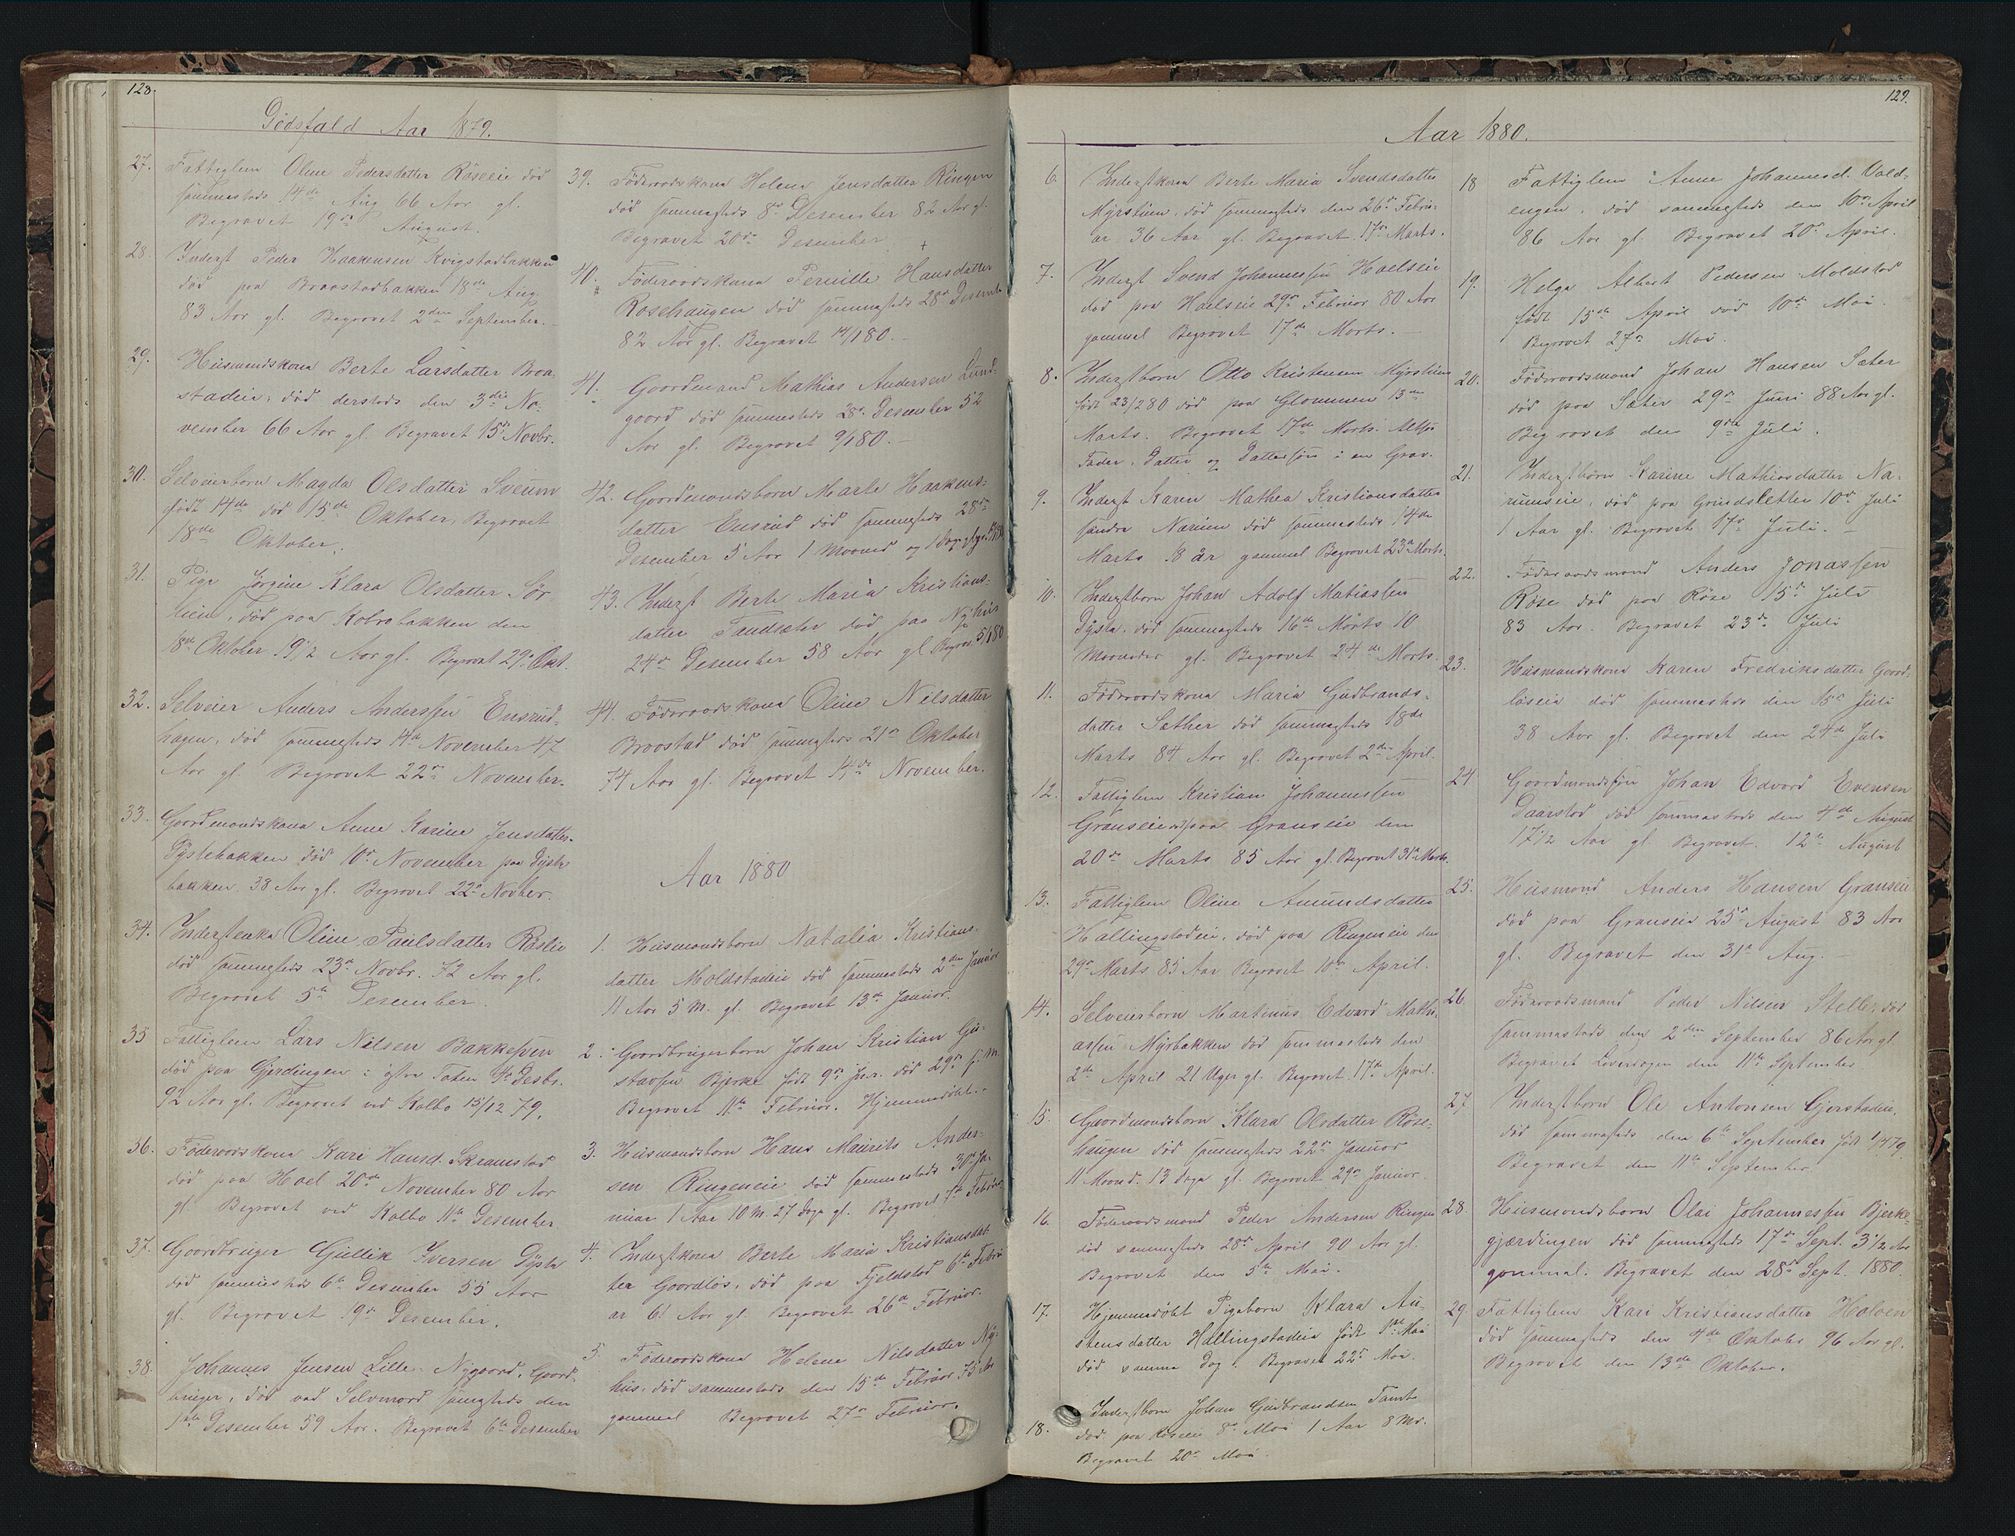 128.
Dødsfald Aar 1879.
27. Fattiglem Oline Pedersdatter Røseeie død
sammesteds 14de Aug 66 Aar gl.
Begravet 19de August.
28. Inderst Peder Haakensen Kvigstadbakken
død paa Braastadbakken 18de Aug.
83 Aar gl. Begravet 2den September.
29. Husmandskona Berte Larsdatter Braa-
stadeie, død dersteds den 3die No-
vember 66 Aar gl. Begravet 15de Novbr.
30. Selveierbarn Magda Olsdatter Sveum
født 14de død 15de Oktober, Begravet
18de Oktober.
31. Pige Jørgine Klara Olsdatter Sør
lien, død paa Kolbobakken den
18de Oktober 19 1/2 Aar gl. Begravet 29de Okt.
32. Selveier Anders Anderssøn Ensrud-
hagen, død sammesteds 14de November 47
Aar gl. Begravet 22de November.
33. Gaardmandskona Anne Karine Jensdatter
Dystebakken død 10de November paa Dyste-
bakken 38 Aar gl. Begravet 22de Novber.
34. Inderstenka Oline Paulsdatter Røslie
død sammesteds 23de Novbr. 72 Aar gl.
Begravet 5te Desember.
35 Fattiglem Lars Nilsen Bakkespen
død paa Gjerdingen i østre Toten 9de Desbr.
92 Aar gl. Begravet ved Kolbo 15/12 79.
36. Føderaadskona Kari Hansd. Skramstad
død paa Hoel 20de November 80 Aar
gl. Begravet ved Kolbo 11te Desember
37. Gaardbruger Gullik Iversen Dyste
død sammesteds 6te Desember 55 Aar
gl. Begravet 19de Desember.
38. Johannes Jensen Lille Nygaard, Gaard-
bruger, død ved Selvmord samesteds den
1ste Desember 59 Aar. Begravet 6te Desember
39. Føderaadskona Helene Jensdatter Ringen
død sammesteds 8de Desember 82 Aar gl.
Begravet 20de Desember
40. Føderaadskona Pernille Hansdatter
Rosehaugen død sammesteds 28de Desembe
82 Aar gl. Begravet 14/1 80.
41. Gaardmand Mathias Andersen Lund-
gaard død sammesteds 28de Desember 52
Aar gl. Begravet 9/1 80.
42. Gaardmandsbarn Marte Haakens-
datter Ensrud død sammesteds 28de
Desember 5 Aar 1 Maaned og 1 Dag gl.
43. Inderst Berte Maria Kristians-
datter Sandsæter død paa Nyhus
24de Desember 58 Aar gl. Begrav. 5/1 80
44. Føderaadskona Oline Nilsdatter
Braastad død sammesteds 21de Oktober
74 Aar gl. Begravet 14de November.
Aar 1880
1. Husmandsbarn Natalia Kristians-
datter Moldstadeie død sammesteds 2den Januar
11 Aar 5 M. gl. Begravet 13de Januar.
2. Gaardbrugerbarn Johan Kristian Gu-
stavsen Bjerke født 9de Jan. død 29de s. M.
Begravet 11te Februar. Hjemmedøbt.
3. Husmandsbarn Hans Maurits Ander-
sen Ringeneie død sammesteds 30de Ja-
nuar 1 Aar 10 M. 27 Dage gl. Begravet 7de Februar
4. Inderstkona Berte Maria Kristiansdat-
ter Gaardløs, død paa Fjeldstad 6te Febru
ar 61 Aar gl. Begravet 26de Februar.
5. Føderaadskona Helene Nilsdatter Ny-
hus, død sammesteds den 15de Februar 75 Aar
gammel Begravet 27de Februar.
129.
Aar 1880.
6. Inderstkona Berte Maria Svendsdatter
Myrstuen, død sammesteds den 26de Febru-
ar 36 Aar gl. Begravet 17de Marts.
7. Inderst Svend Johannessen Hoelseie
død paa Hoelseie 29de Februar 80 Aar
gammel Begravet 17de Marts.
8. Inderstbarn Otto Kristensen Myrstuen
født 23/2 80 død paa Glommen 13de
Marts. Begravet 17de Marts. Altsaa
Fader, Datter og Dattersøn i en Grav.
9. Inderst Karen Mathea Kristiansdatter
søndre Narum død sammesteds 14de
Marts 18 år gammel Begravet 23de Marts.
10. Inderstbarn Johan Adolf Matiassen
Dyste, død sammesteds 16de Marts 10
Maaneder gl. Begravet 24de Marts.
11. Føderaadskona Maria Gudbrands-
datter Sæther død sammesteds 18de
Marts 84 Aar gl. Begravet 2den April.
12. Fattiglem Kristian Johannessen
Granseie død paa Granseie den
20de Marts 85 Aar gl. Begravet 31te Marts.
13. Fattiglem Oline Amundsdatter
Hallingstadeie, død paa Ringeneie den
29de Marts 85 Aar Begravet 10de April.
14. Selveierbarn Martinus Edvard Mathi-
assen Myrbakken død sammesteds den
2den April 21 Uger gl. Begravet 17de April.
15. Gaardmandsbarn Klara Olsdatter Røse-
haugen død sammesteds 22de Januar
11 Maand. 13 Dage gl. Begravet 29de Januar.
16. Føderaadsmand Peder Andersen Ringen
død sammesteds 28de April 90 Aar gl.
Begravet den 5te Mai.
17. Hjemmedøbt Pigebarn Klara Au-
stensdatter Hallingstadeie født 1ste Mai
død samme Dag. Begravet 22de Mai.
18. Inderstbarn Johan Gudbrandsen Tømte
død paa Røseeie 8de Mai 1 Aar 8 Md.
Begravet 20de Mai.
18 Fattiglem Anne Johannesd. Vold-
engen, død sammesteds den 10de April
86 Aar gl. Begravet 20de April.
19. Helga Albert Pedersen Moldstad
født 15de April død 10de Mai.
Begravet 27de Mai.
20. Føderaadsmand Johan Hansen Sæter
død paa Sæter 29de Juni 88 Aar gl.
Begravet den 9de Juli.
21. Inderstbarn Karine Mathiasdatter Na-
rumseie, død paa Grindsletter 10de Juli
1 Aar gl. Begravet 17de Juli.
22. Føderaadsmand Anders Jonassen
Røse død paa Røse 15de Juli
83 Aar. Begravet 23de Juli
23. Husmandskona Karen Fredriksdatter Gaard-
løseie død sammesteds den 15de Juli
38 Aar gl. Begravet den 24de Juli
24 Gaardmandssøn Johan Edvard Evensen
Daarstad død sammesteds den 4de August
17 1/2 Aar gl. Begravet 12te August
25. Husmand Anders Hansen Granseie
død paa Granseie 25de August 83 Aar
gl. Begravet den 31te Aug.
26. Føderaadsmand Peder Nilsen Stelle død
sammesteds den 2den September 86 Aar gl.
Begravet den 11te September
27. Inderstbarn Ole Antonsen Gjerstadeie,
død sammesteds den 6te September født 1/4 79.
Begravet den 11te September.
28. Husmandsbarn Olai Johannessen Bjerke-
gjærdingen død sammesteds 17de Sept. 3 1/2 Aar
gammel. Begravet den 28de Sept. 1880.
29. Fattiglem Kari Kristiansdatter Holven
død sammesteds den 4de Oktober 96 Aar gl.
Begravet den 13de Oktober.